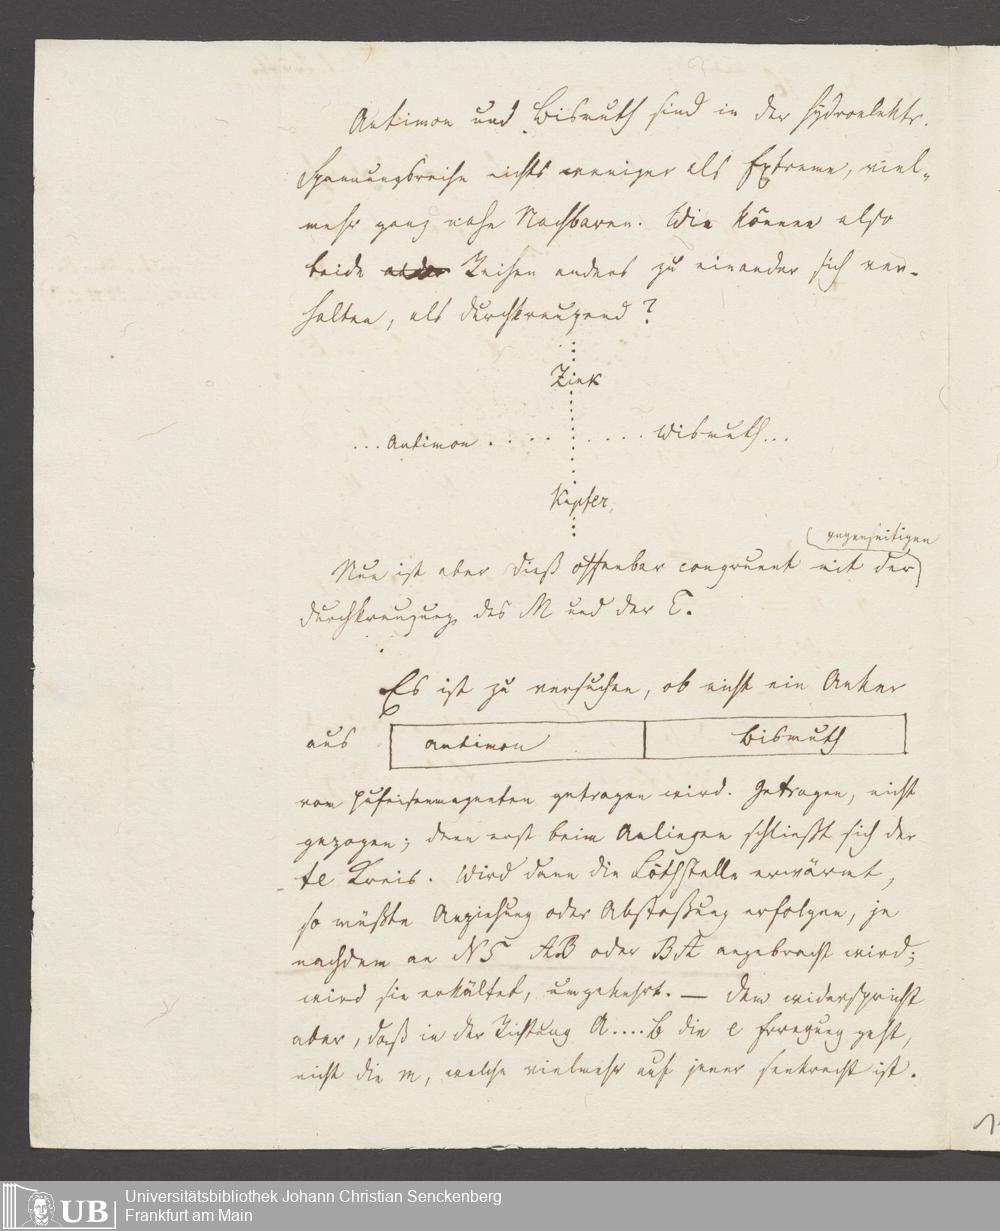 Antimon und Bismuth sind in der hydroelektr.
Spannungsreihe nichts weniger als Extreme, viel-
mehr ganz nahe Nachbaren. Wie können also
beide Reihen anders zu einander sich ver-
halten, als durchkreuzend?
Zink
...Antimon........Wismuth...
Kupfer,
gegenseitigen
Nun ist aber dieß offenbar congruent mit der
Durchkreuzung des M und der E.
Es ist zu versuchen, ob nicht ein Anker
aus antimon Bismuth
vom Hufeisenmagneten getragen wird. Getragen, nicht
gezogen; denn erst beim Anliegen schließt sich der
te Kreis. Wird dann die Löthstelle erwärmt,
so müßte Anziehung oder Abstoßung erfolgen, je
nachdem an NS AB oder BA angebracht wird;
wird sie erkältet, umgekehrt. — Dem widerspricht
aber, daß in der Richtung A....B die e Erregung geht,
nicht die m, welche vielmehr auf jener senkrecht ist.
UB
Universitätsbibliothek Johann Christian Senckenberg
Frankfurt am Main